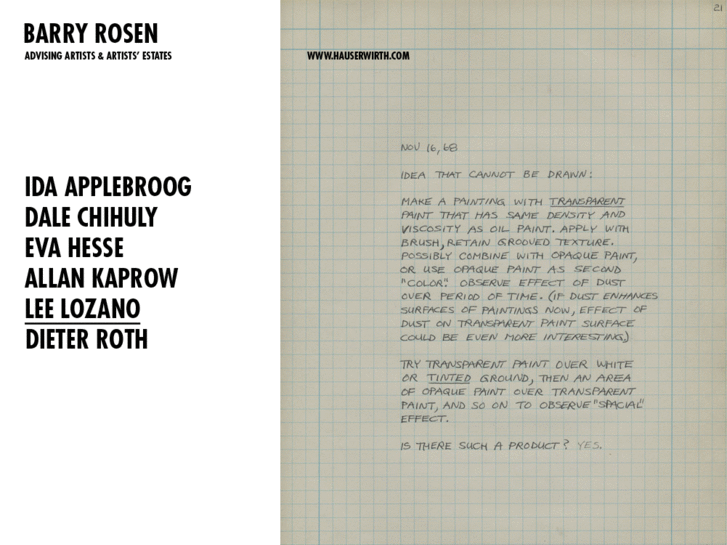 BARRY ROSEN
ADVISING ARTISTS & ARTISTS' ESTATES
IDA APPLEBROOG
DALE CHIHULY
EVA HESSE
ALLAN KAPROW
LEE LOZANO
DIETER ROTH
WWW.HAUSERWIRTH.COM
21
NOV 16, 68
IDEA THAT CANNOT BE DRAWN:
MAKE A PAINTING WITH TRANSPARENT
PAINT THAT HAS SAME DENSITY AND
VISCOSITY AS OIL PAINT. APPLY WITH
BRUSH, RETAIN GROOVED TEXTURE.
POSSIBLY COMBINE WITH OPAQUE PAINT,
OR USE OPAQUE PAINT AS SECOND
"COLOR". OBSERVE EFFECT OF DUST
OVER PERIOD OF TIME. (IF DUST ENHANCES
SURFACES OF PAINTINGS NOW, EFFECT OF
DUST ON TRANSPARENT PAINT SURFACE
COULD BE EVEN MORE INTERESTING.)
TRY TRANSPARENT PAINT OVER WHITE
OR TINTED GROUND, THEN AN AREA
OF OPAQUE PAINT OVER TRANSPARENT
PAINT, AND SO ON TO OBSERVE "SPACIAL"
EFFECT.
IS THERE SUCH A PRODUCT? YES.